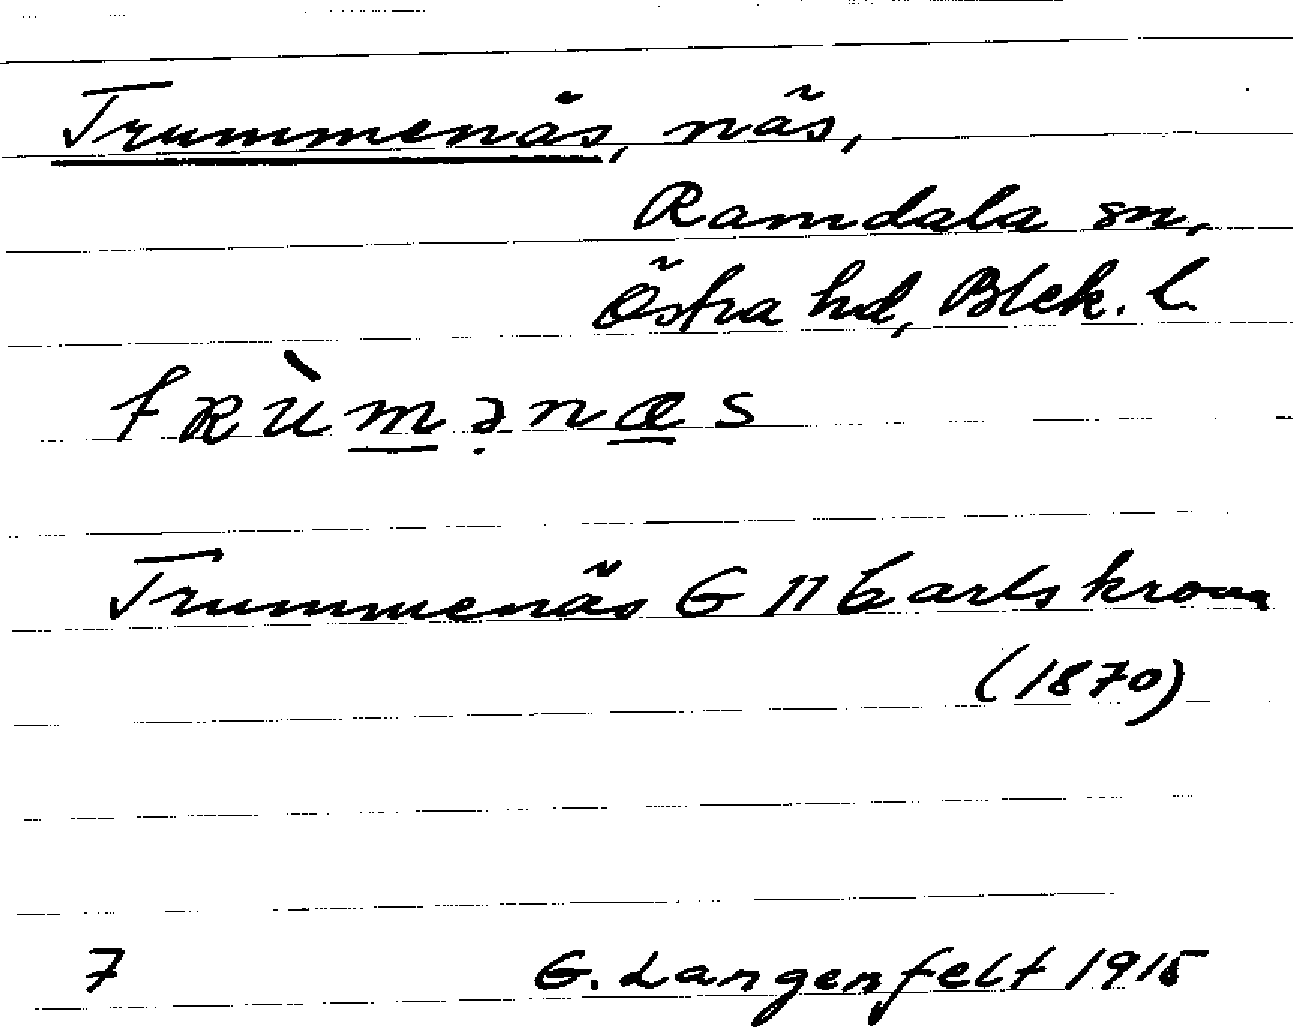 Trummenäs, näs,
Ramdala sn,
Östra hd, Blek. l.
trùmənæs
Trummenäs G 11 Carlskrona
(1870)
7 G. Langenfelt 1915